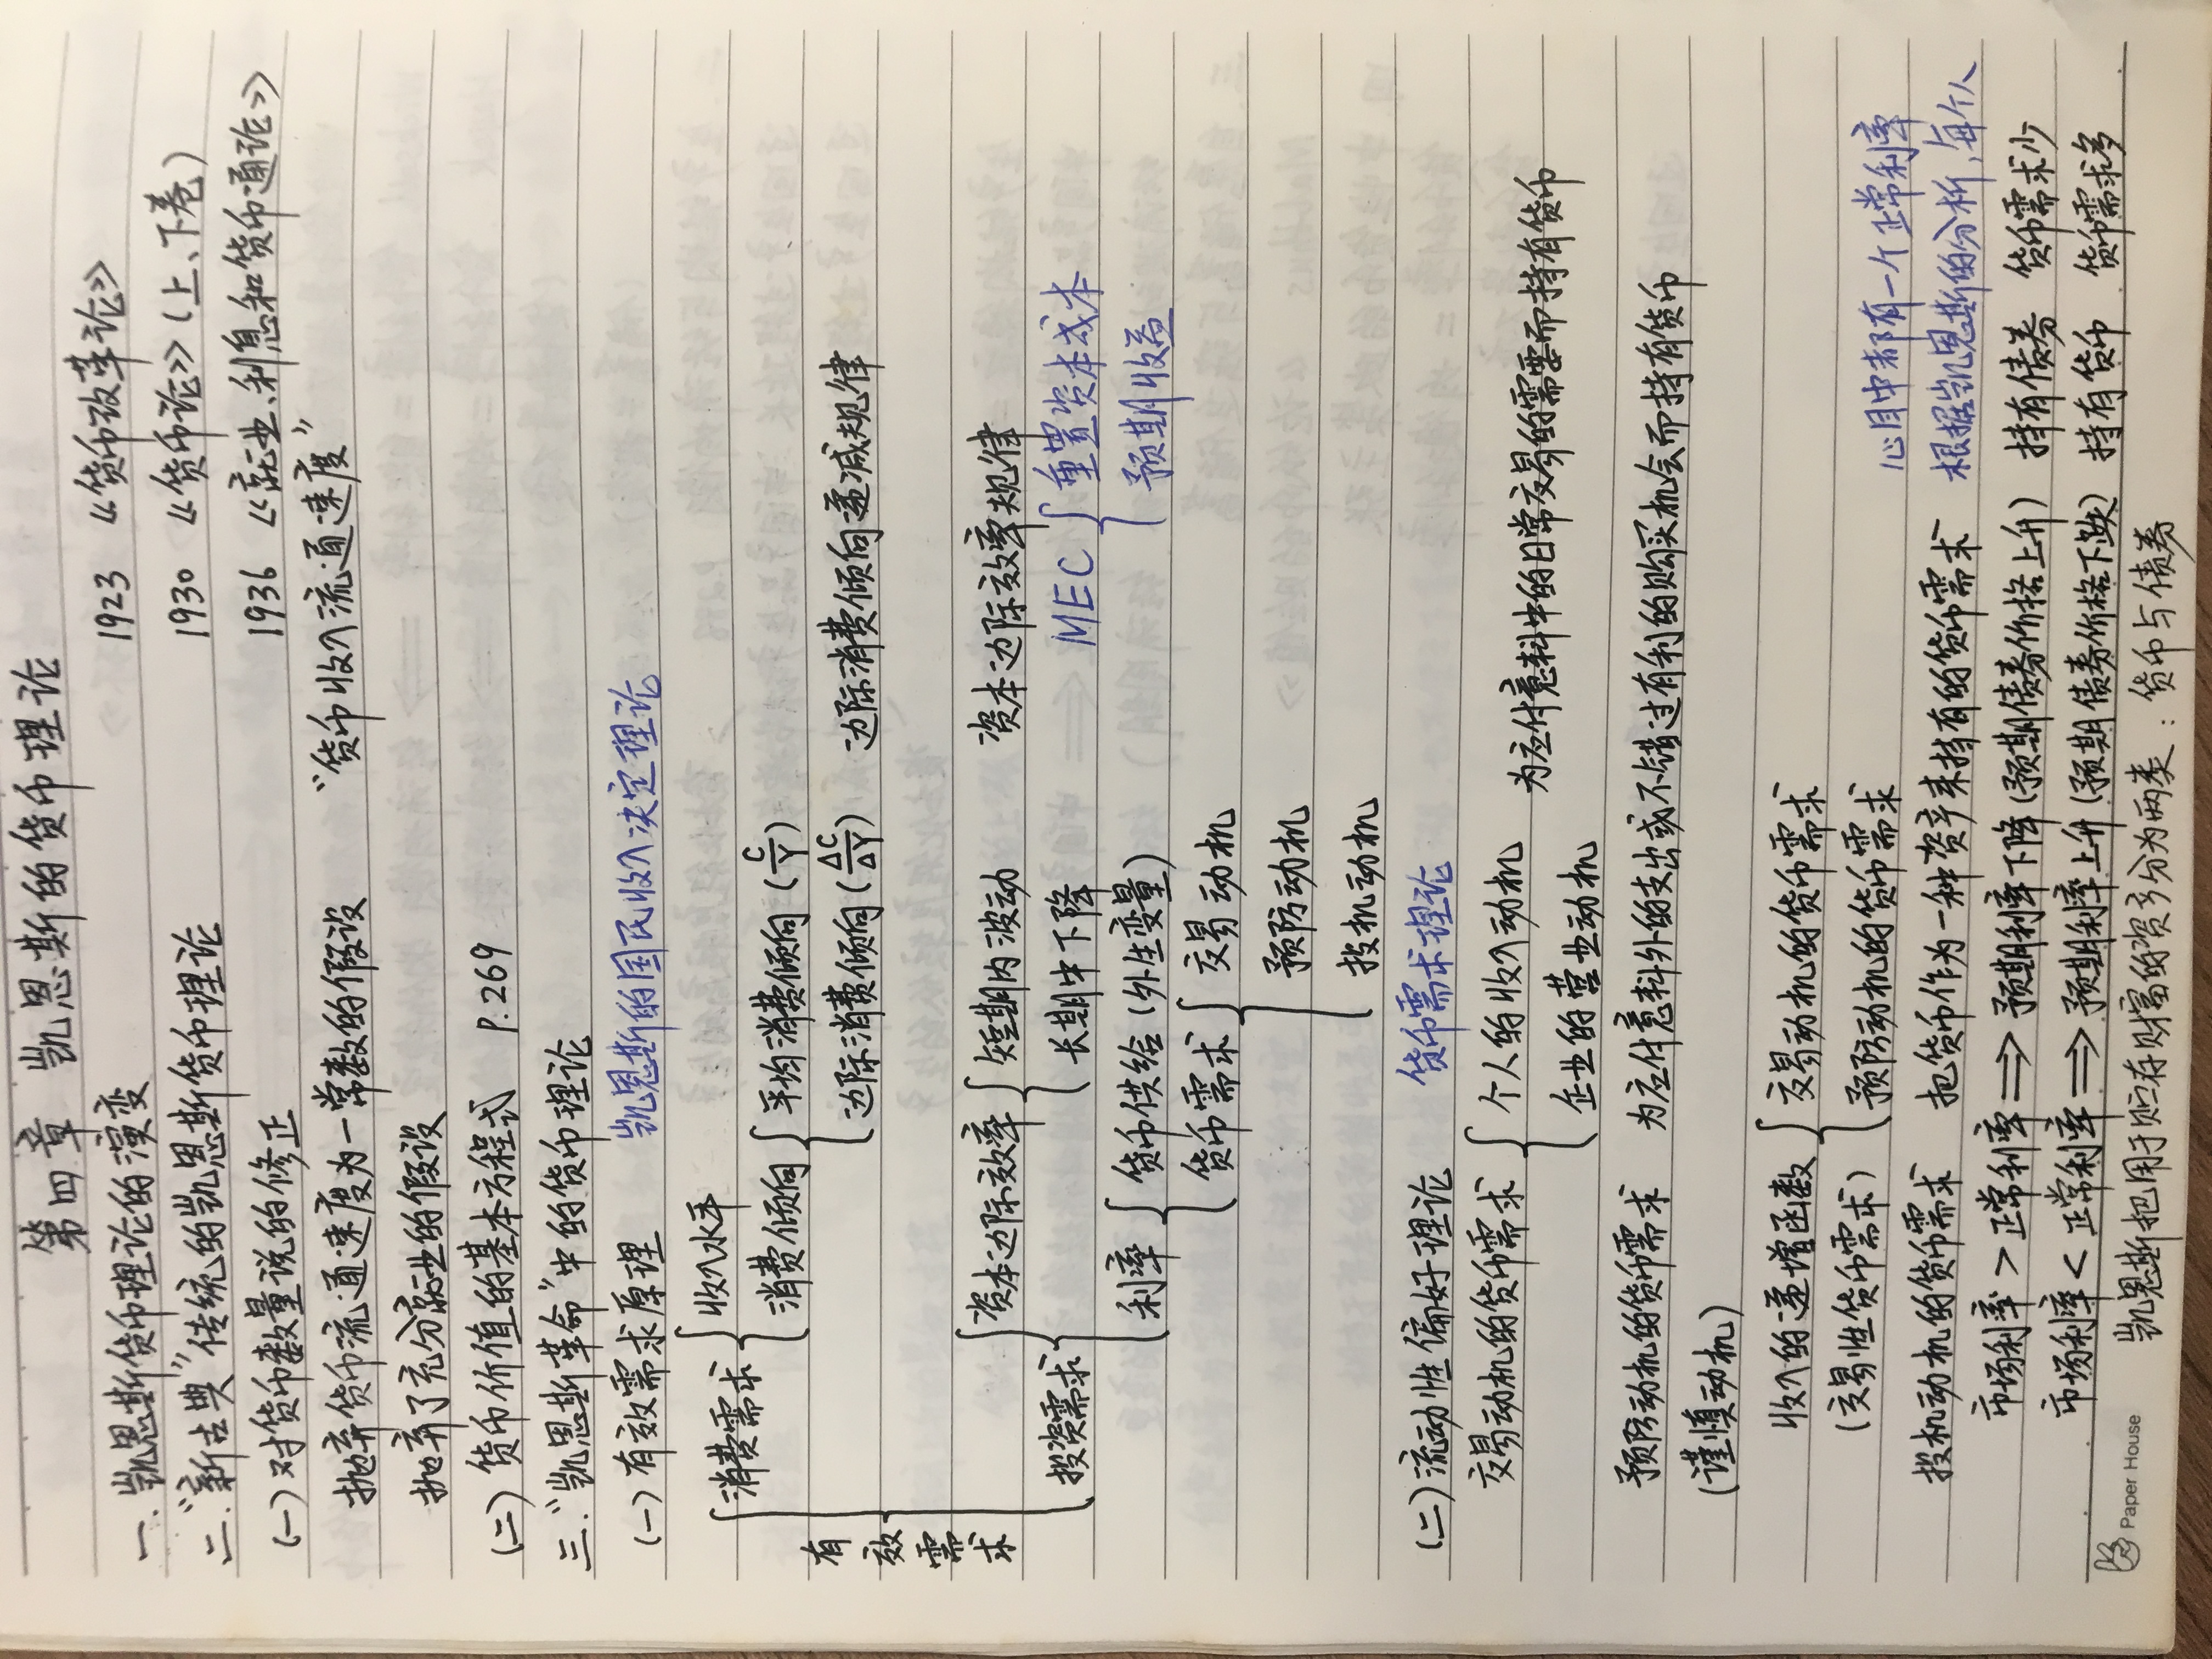 第四章 凯恩斯的货币理论
一.凯恩斯货币理论的演变 1923 《货币改革论》
二.“新古典”传统的凯恩斯货币理论 1930 《货币论》(上、下卷)
(一)对货币数量说的修正 1936 《就业、利息和货币通论》
抛弃货币流通速度为一常数的假设 “货币收入流通速度”
抛弃了充分就业的假设
(二)货币价值的基本方程式 P.269
三.“凯恩斯革命”中的货币理论
(一)有效需求原理 凯恩斯的国民收入决定理论
有效需求
消费需求 收入水平
消费倾向 平均消费倾向(C/Y)
边际消费倾向(ΔC/ΔY) 边际消费倾向递减规律
投资需求 资本边际效率 短期内波动 资本边际效率规律
长期中下降 MEC 重置资本成本
预期收益
利率 货币供给(外生变量)
货币需求 交易动机
预防动机
投机动机
(二)流动性偏好理论 货币需求理论
交易动机的货币需求 个人的收入动机 为应付意料中的日常交易的需要而持有货币
企业的营业动机
预防动机的货币需求 为应付意料外的支出或不错过有利的购买机会而持有货币
(谨慎动机)
收入的递增函数 交易动机的货币需求
(交易性货币需求) 预防动机的货币需求
心目中都有一个正常利率
投机动机的货币需求 把货币作为一种资产来持有的货币需求 根据凯恩斯的分析,每个人
市场利率 > 正常利率 ⟹ 预期利率下降(预期债券价格上升) 持有债券 货币需求少
市场利率 < 正常利率 ⟹ 预期利率上升(预期债券价格下跌) 持有货币 货币需求多
凯恩斯把用于贮存财富的资产分为两类:货币与债券
Paper House